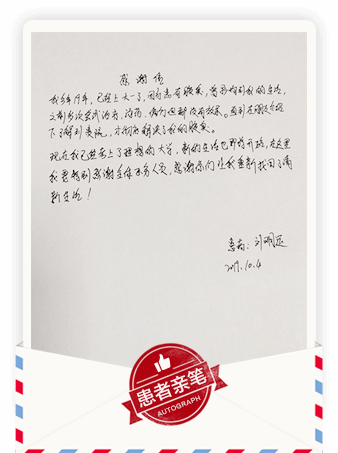 感谢信
我今年19年,已经上大一了,因为患有腋臭,曾影响到我的生活,
之前多次尝试治疗,治药,偏方但都没有效果。直到在朋友介绍
下了解到贵院,才彻底解决了我的腋臭。
现在我已经考上了理想的大学,新的生活也即将开始,在这里
我要特别感谢全体医务人员,感谢你们让我重新找回了清
新生活!
患者:刘明
2017.10.4
患者亲笔
AUTOGRAPH